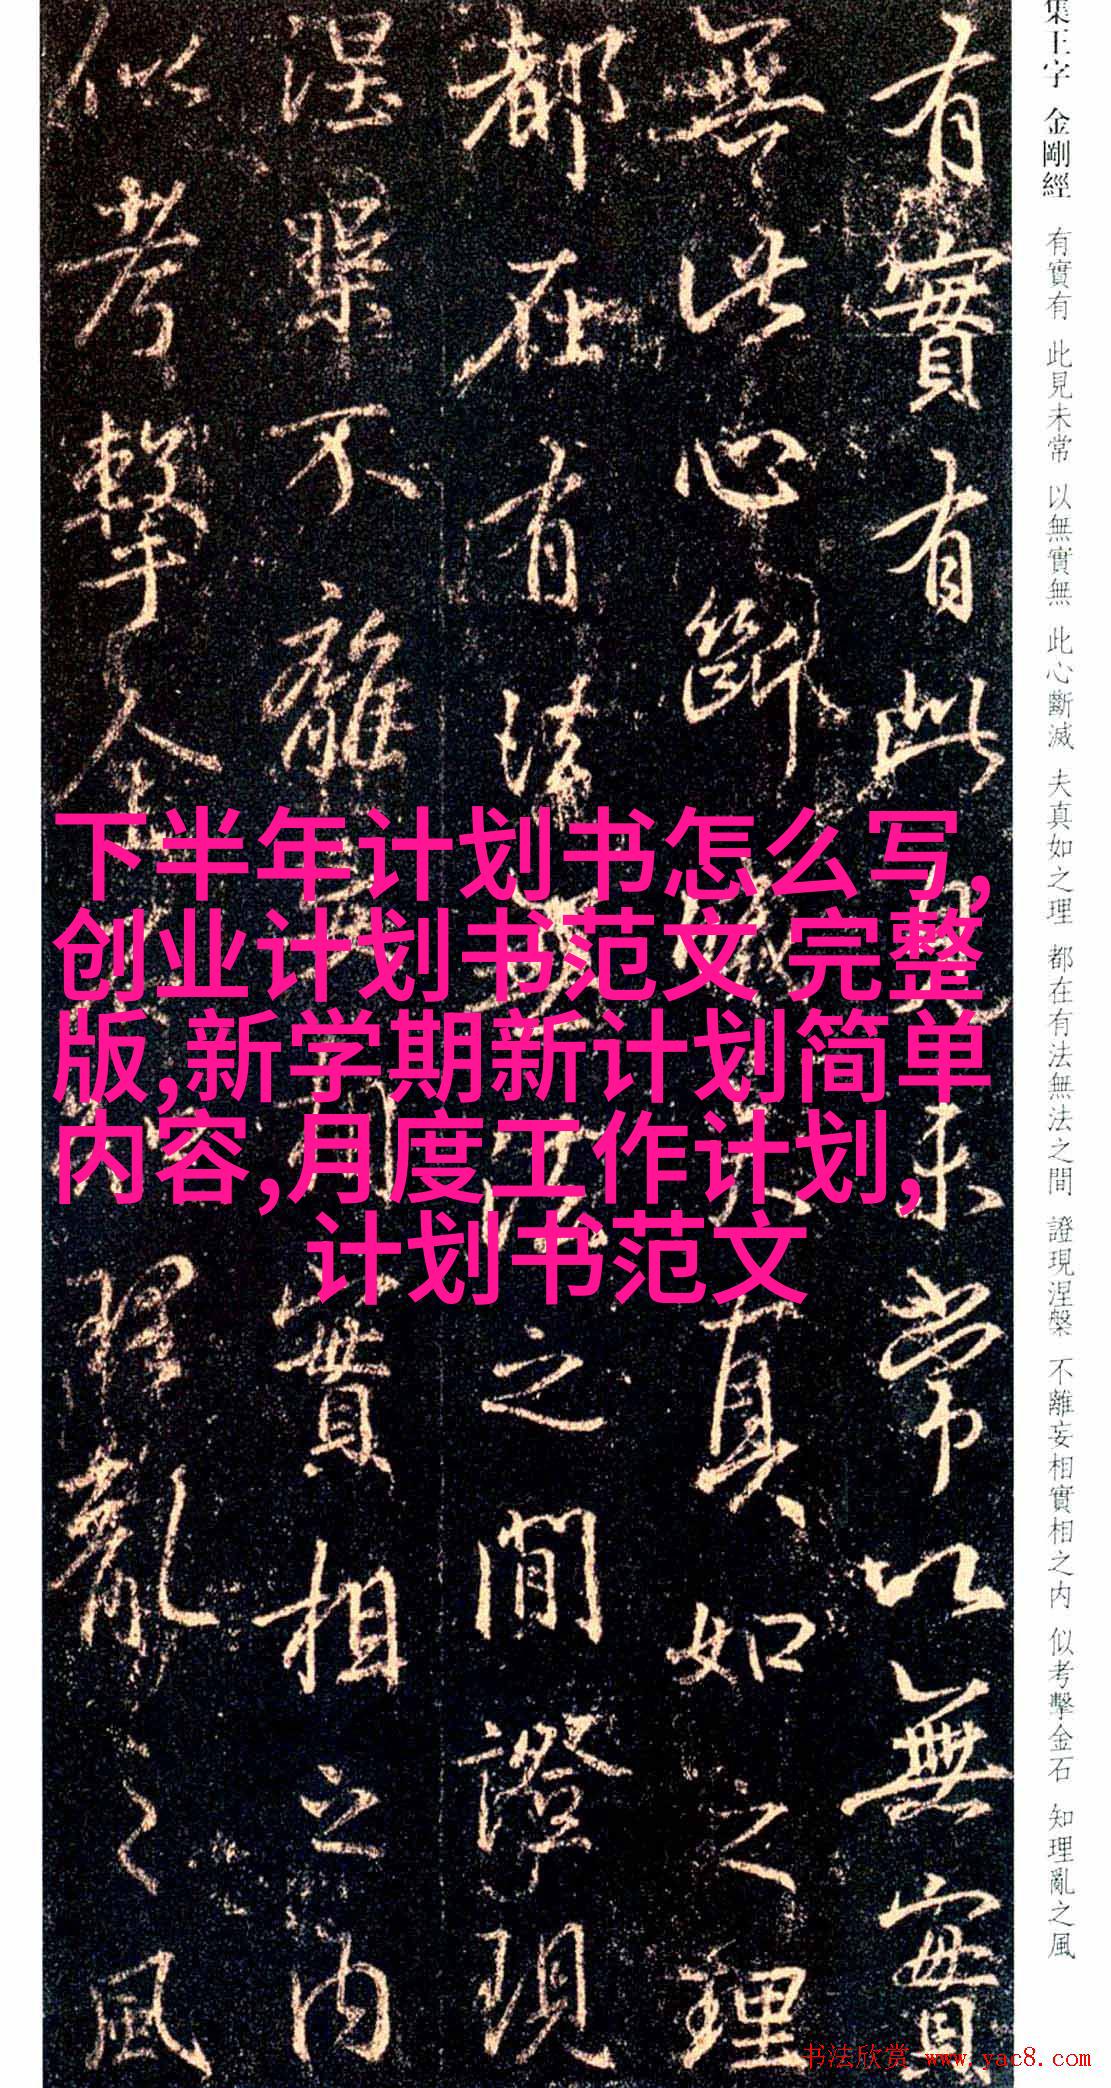 集王字 金剛經 有實有 此見未常 以無實無 此心斷滅 夫真如之理 都在有法無法之間 證現涅槃 不離妄相實相之内 似考擊金石 知理亂之風
有實有此見未常以無實
無此心斷滅夫真如之理
都在有法無法之間證現
涅槃不離妄相實相之内
似考擊金石知理亂之風
下半年计划书怎么写,
创业计划书范文 完整
版,新学期新计划简单
内容,月度工作计划,
计划书范文
书法欣赏 www.yac8.com